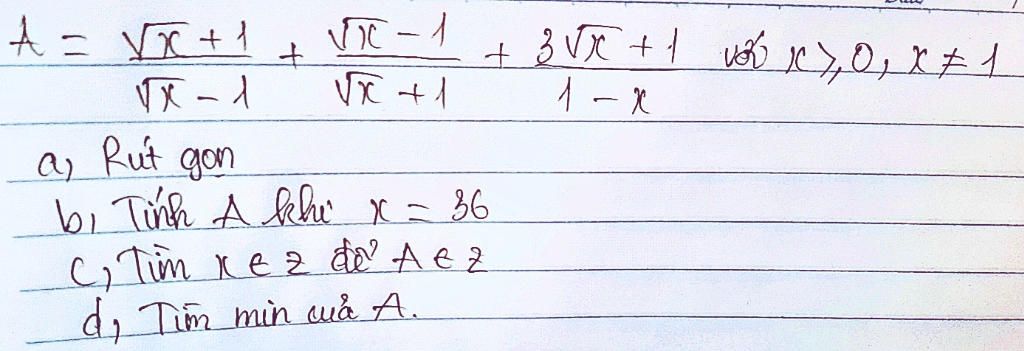 A = \frac{\sqrt{x} + 1}{\sqrt{x} - 1} + \frac{\sqrt{x} - 1}{\sqrt{x} + 1} + \frac{3\sqrt{x} + 1}{1 - x} với x ≥ 0, x ≠ 1
a, Rút gọn
b, Tính A khi x = 36
c, Tìm x ∈ Z để A ∈ Z
d, Tìm min của A.